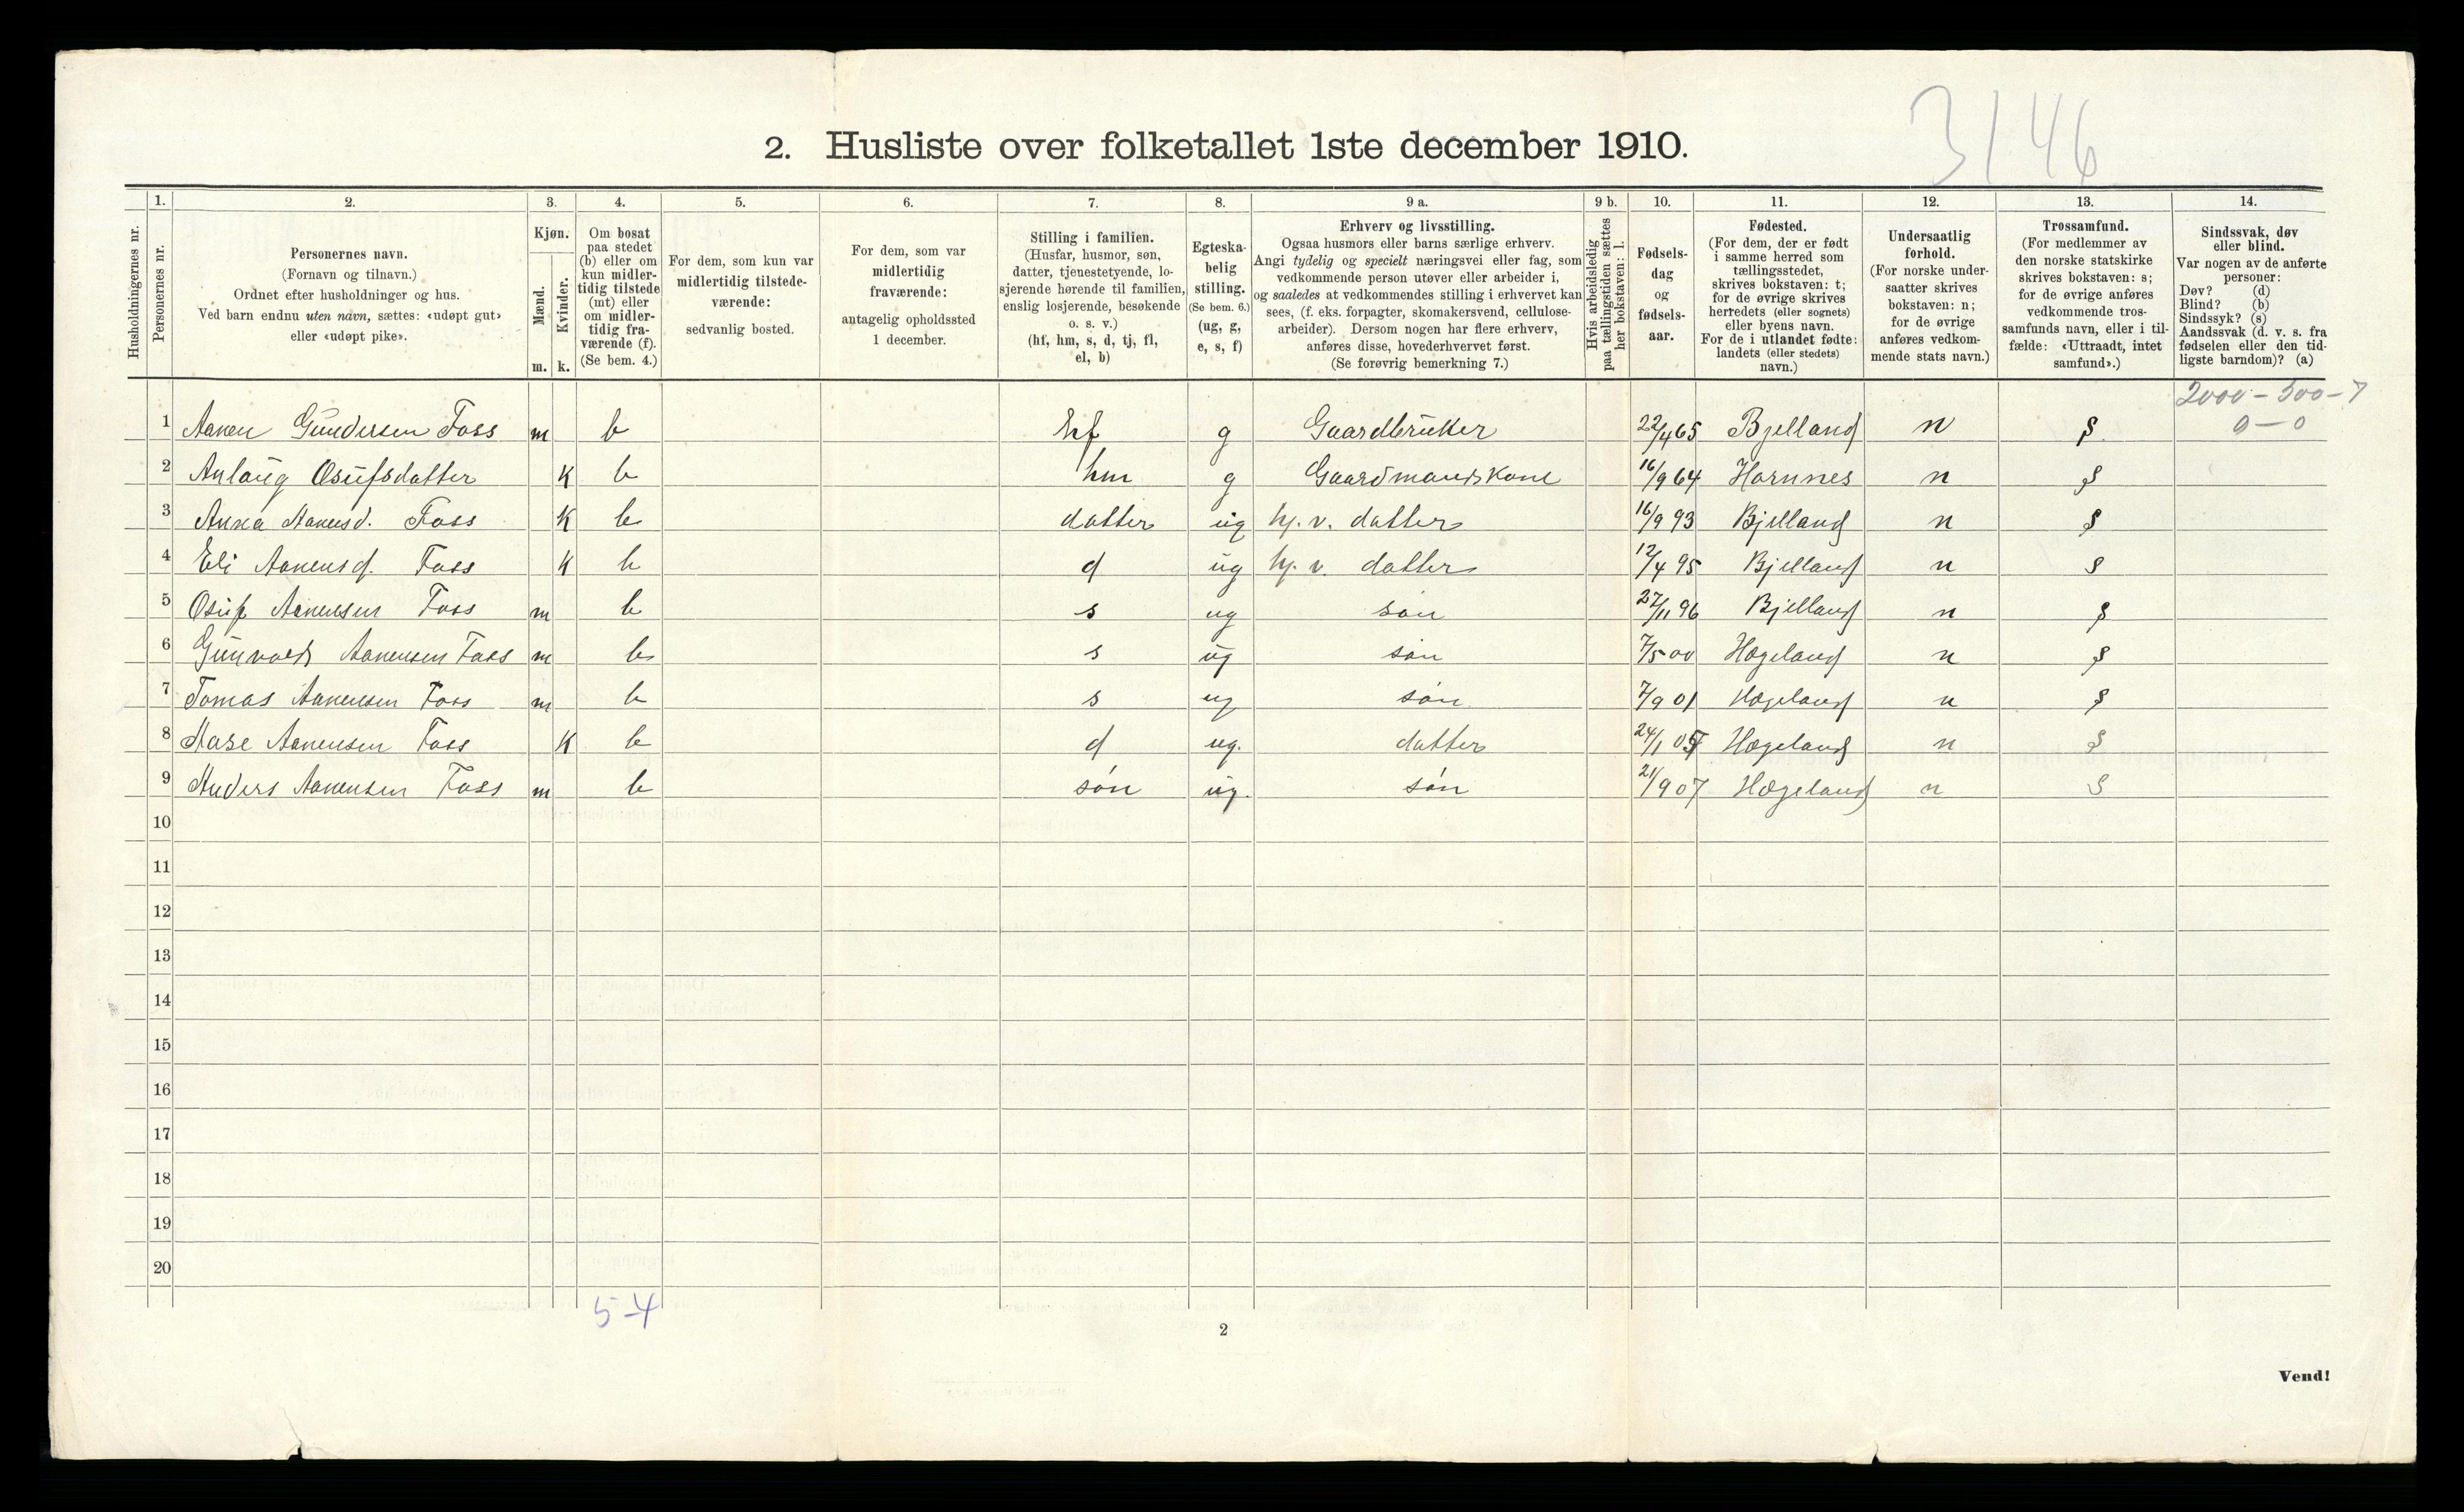 3146
2. Husliste over folketallet 1ste december 1910.
Husholdningernes nr.
1. Personernes nr.
2. Personernes navn. (Fornavn og tilnavn.) Ordnet efter husholdninger og hus. Ved barn endnu uten navn, sættes: «udøpt gut» eller «udøpt pike».
3. Kjøn. Mænd. m. Kvinder. k.
4. Om bosat paa stedet (b) eller om kun midlertidig tilstede (mt) eller om midlertidig fraværende (f). (Se bem. 4.)
5. For dem, som kun var midlertidig tilstedeværende: sedvanlig bosted.
6. For dem, som var midlertidig fraværende: antagelig opholdssted 1 december.
7. Stilling i familien. (Husfar, husmor, søn, datter, tjenestetyende, losjerende hørende til familien, enslig losjerende, besøkende o. s. v.) (hf, hm, s, d, tj, fl, el, b)
8. Egteskabelig stilling. (Se bem. 6.) (ug, g, e, s, f)
9 a. Erhverv og livsstilling. Ogsaa husmors eller barns særlige erhverv. Angi tydelig og specielt næringsvei eller fag, som vedkommende person utøver eller arbeider i, og saaledes at vedkommendes stilling i erhvervet kan sees, (f. eks. forpagter, skomakersvend, cellulosearbeider). Dersom nogen har flere erhverv, anføres disse, hovederhvervet først. (Se forøvrig bemerkning 7.)
9 b. Hvis arbeidsledig paa tællingstiden sættes her bokstaven: l.
10. Fødselsdag og fødselsaar.
11. Fødested. (For dem, der er født i samme herred som tællingsstedet, skrives bokstaven: t; for de øvrige skrives herredets (eller sognets) eller byens navn. For de i utlandet fødte: landets (eller stedets) navn.)
12. Undersaatlig forhold. (For norske undersaatter skrives bokstaven: n; for de øvrige anføres vedkommende stats navn.)
13. Trossamfund. (For medlemmer av den norske statskirke skrives bokstaven: s; for de øvrige anføres vedkommende trossamfunds navn, eller i tilfælde: «Uttraadt, intet samfund».)
14. Sindssvak, døv eller blind. Var nogen av de anførte personer: Døv? (d) Blind? (b) Sindssyk? (s) Aandssvak (d. v. s. fra fødselen eller den tidligste barndom)? (a)
2000 - 300 - 7
0 - 0
1 Aanen Gundersen Foss m b hf g Gaardbruker 22/4 65 Bjelland n s
2 Anlaug Osufsdatter K b hm g Gaardmandskone 16/9 64 Hornnes n s
3 Anna Aanensd. Foss K b datter ug hj. v. datter 16/9 93 Bjelland n s
4 Eli Aanensd. Foss K b d ug hj. v. datter 12/4 95 Bjelland n s
5 Osuf Aanensen Foss m b s ug søn 27/11 96 Bjelland n s
6 Gunvald Aanensen Foss m b s ug søn 7/5 00 Hægeland n s
7 Tomas Aanensen Foss m b s ug søn 7/9 01 Hægeland n s
8 Aase Aanensen Foss K b d ug. datter 24/1 05 Hægeland n s
9 Anders Aanensen Foss m b søn ug. søn 21/9 07 Hægeland n s
10
11
12
13
14
15
16
17
18
19
20
5-4
2
Vend!